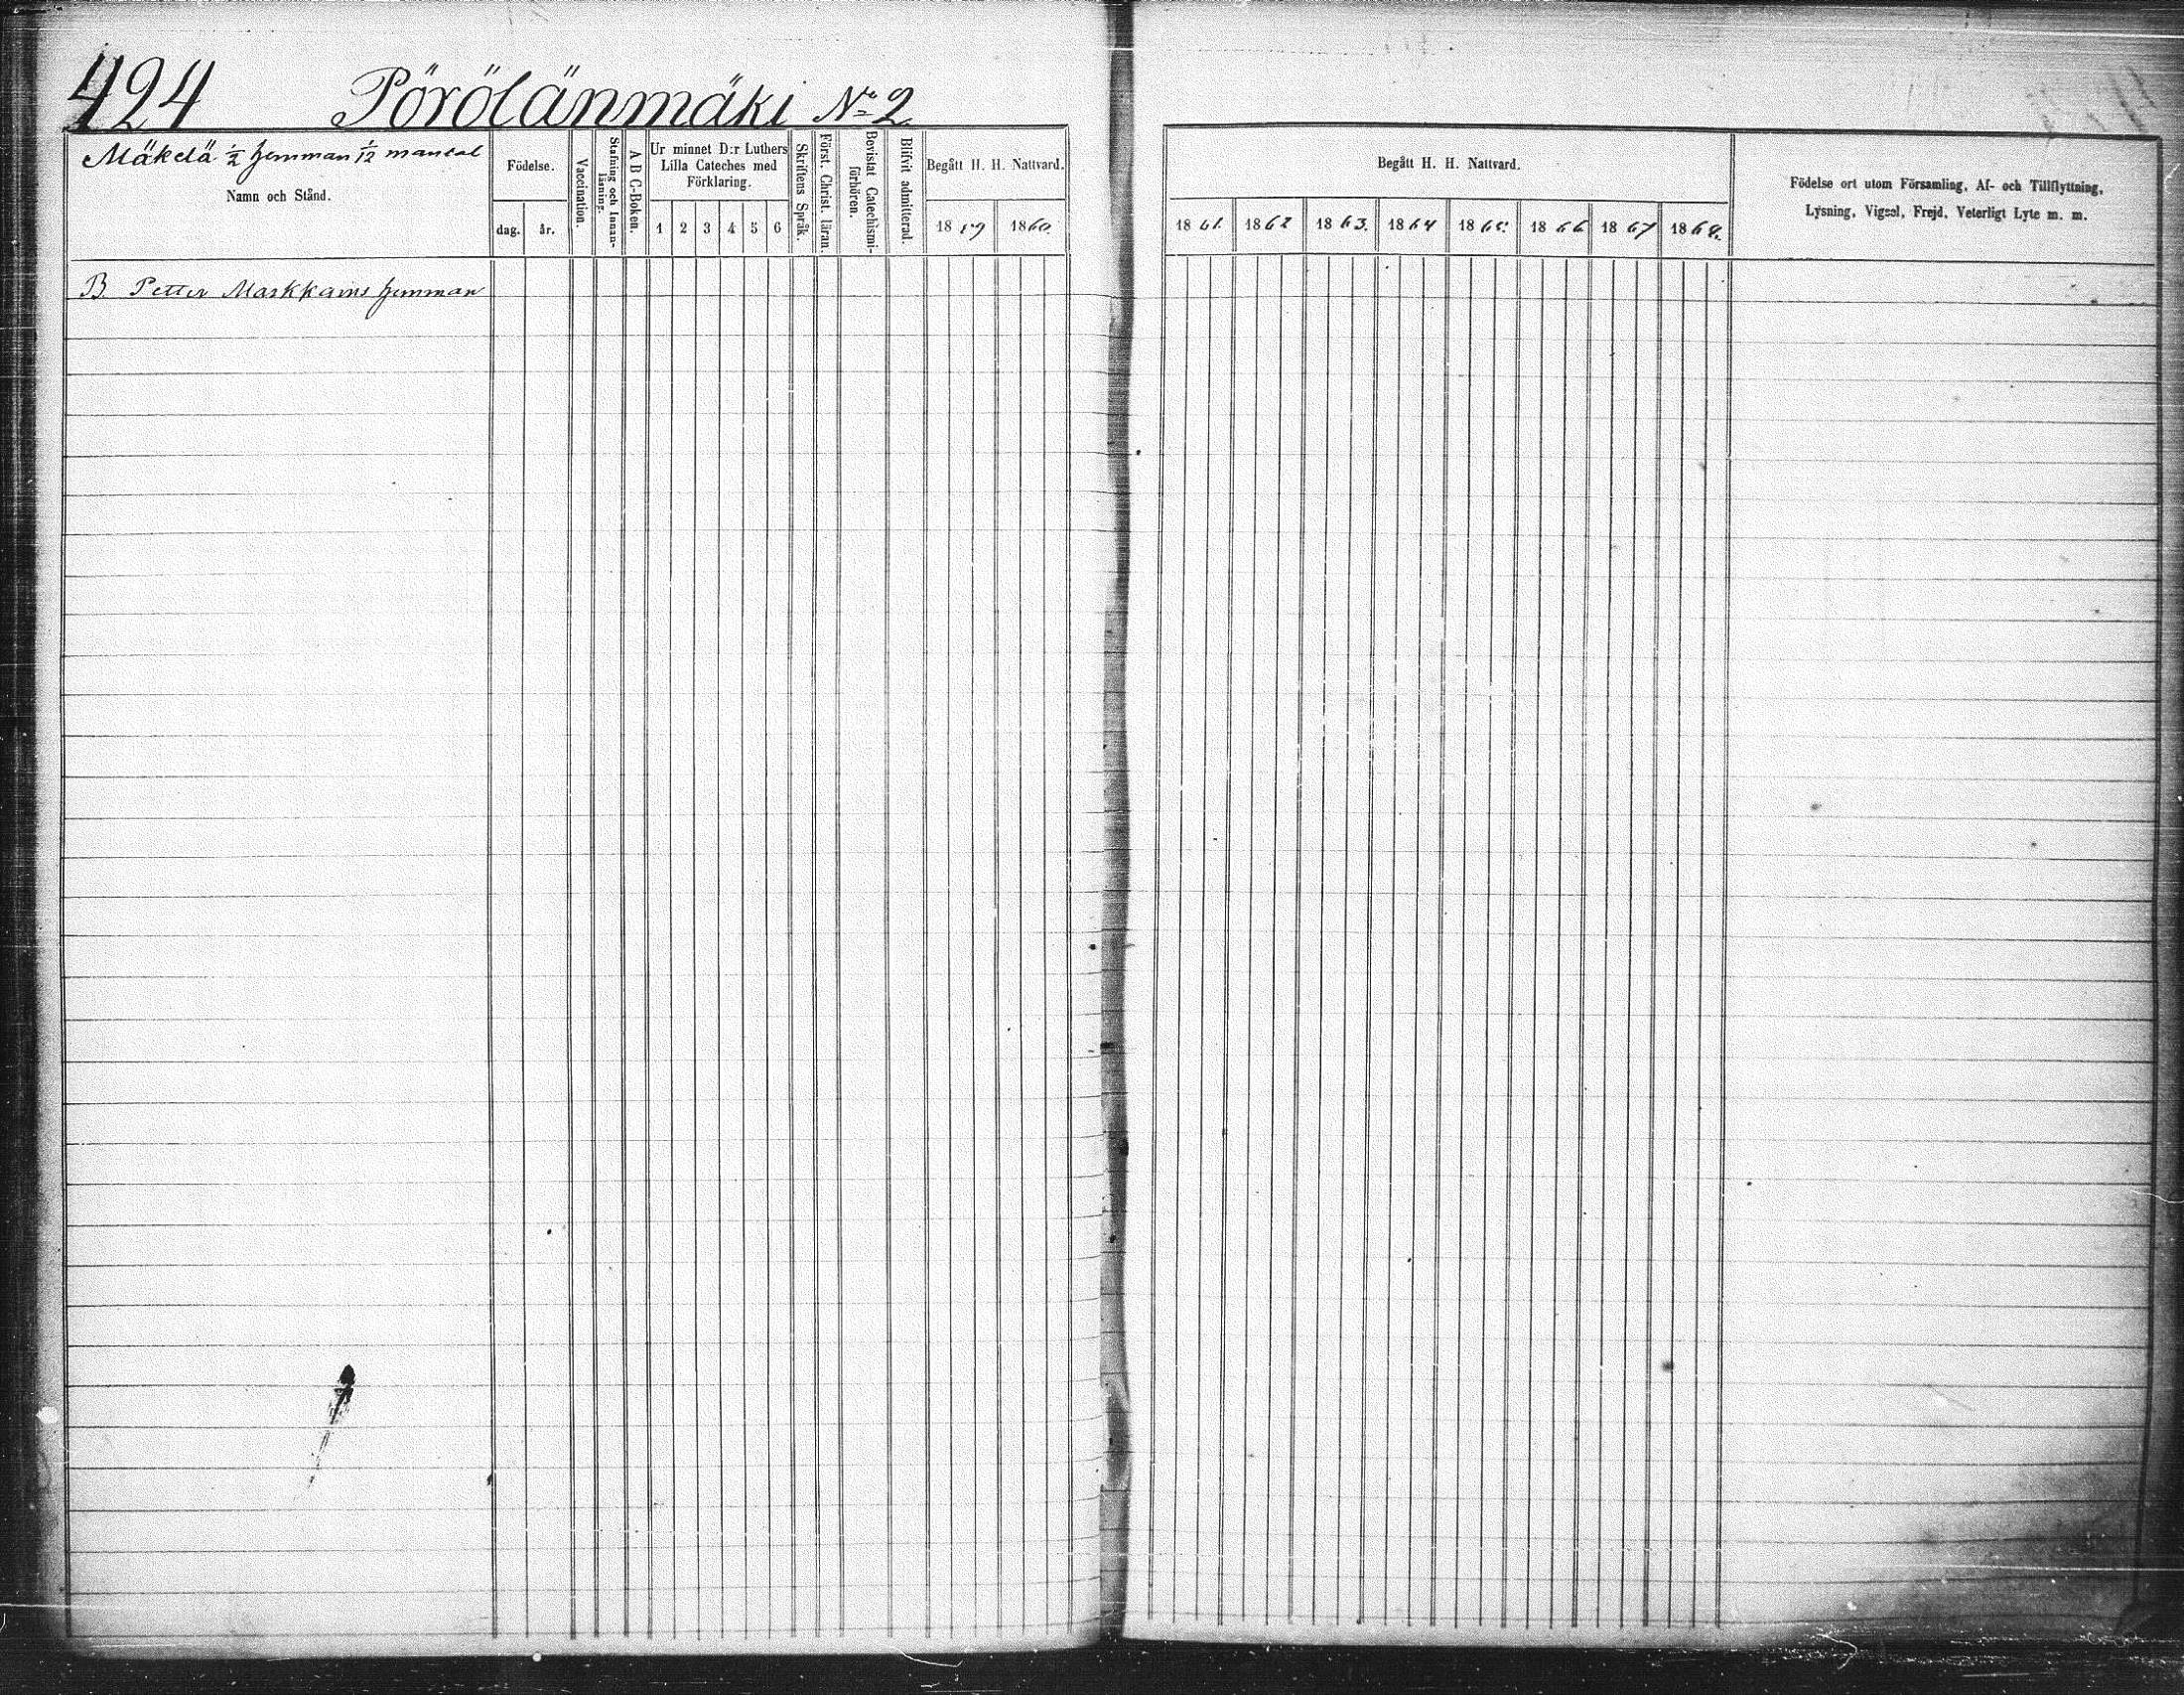 424 Pörölänmäki No 2
Mäkelä 1/2 hemman 1/12 mantal
Namn och Stånd.
Födelse.
dag. år.
Vaccination.
Stafning och Innanläsning.
A B C-Boken.
Ur minnet D:r Luthers
Lilla Cateches med
Förklaring.
1 2 3 4 5 6
Skriftens Språk.
Först. Christ. läran.
Bevistat Catechismi-
förhören.
Blifvit admitterad.
Begått H. H. Nattvard.
1859 1860.
Begått H. H. Nattvard.
1861. 1862 1863. 1864 1865. 1866 1867 1868.
Födelse ort utom Församling, Af- och Tillflyttning,
Lysning, Vigsel, Frejd, Veterligt Lyte m. m.
B. Petter Markkains hemman